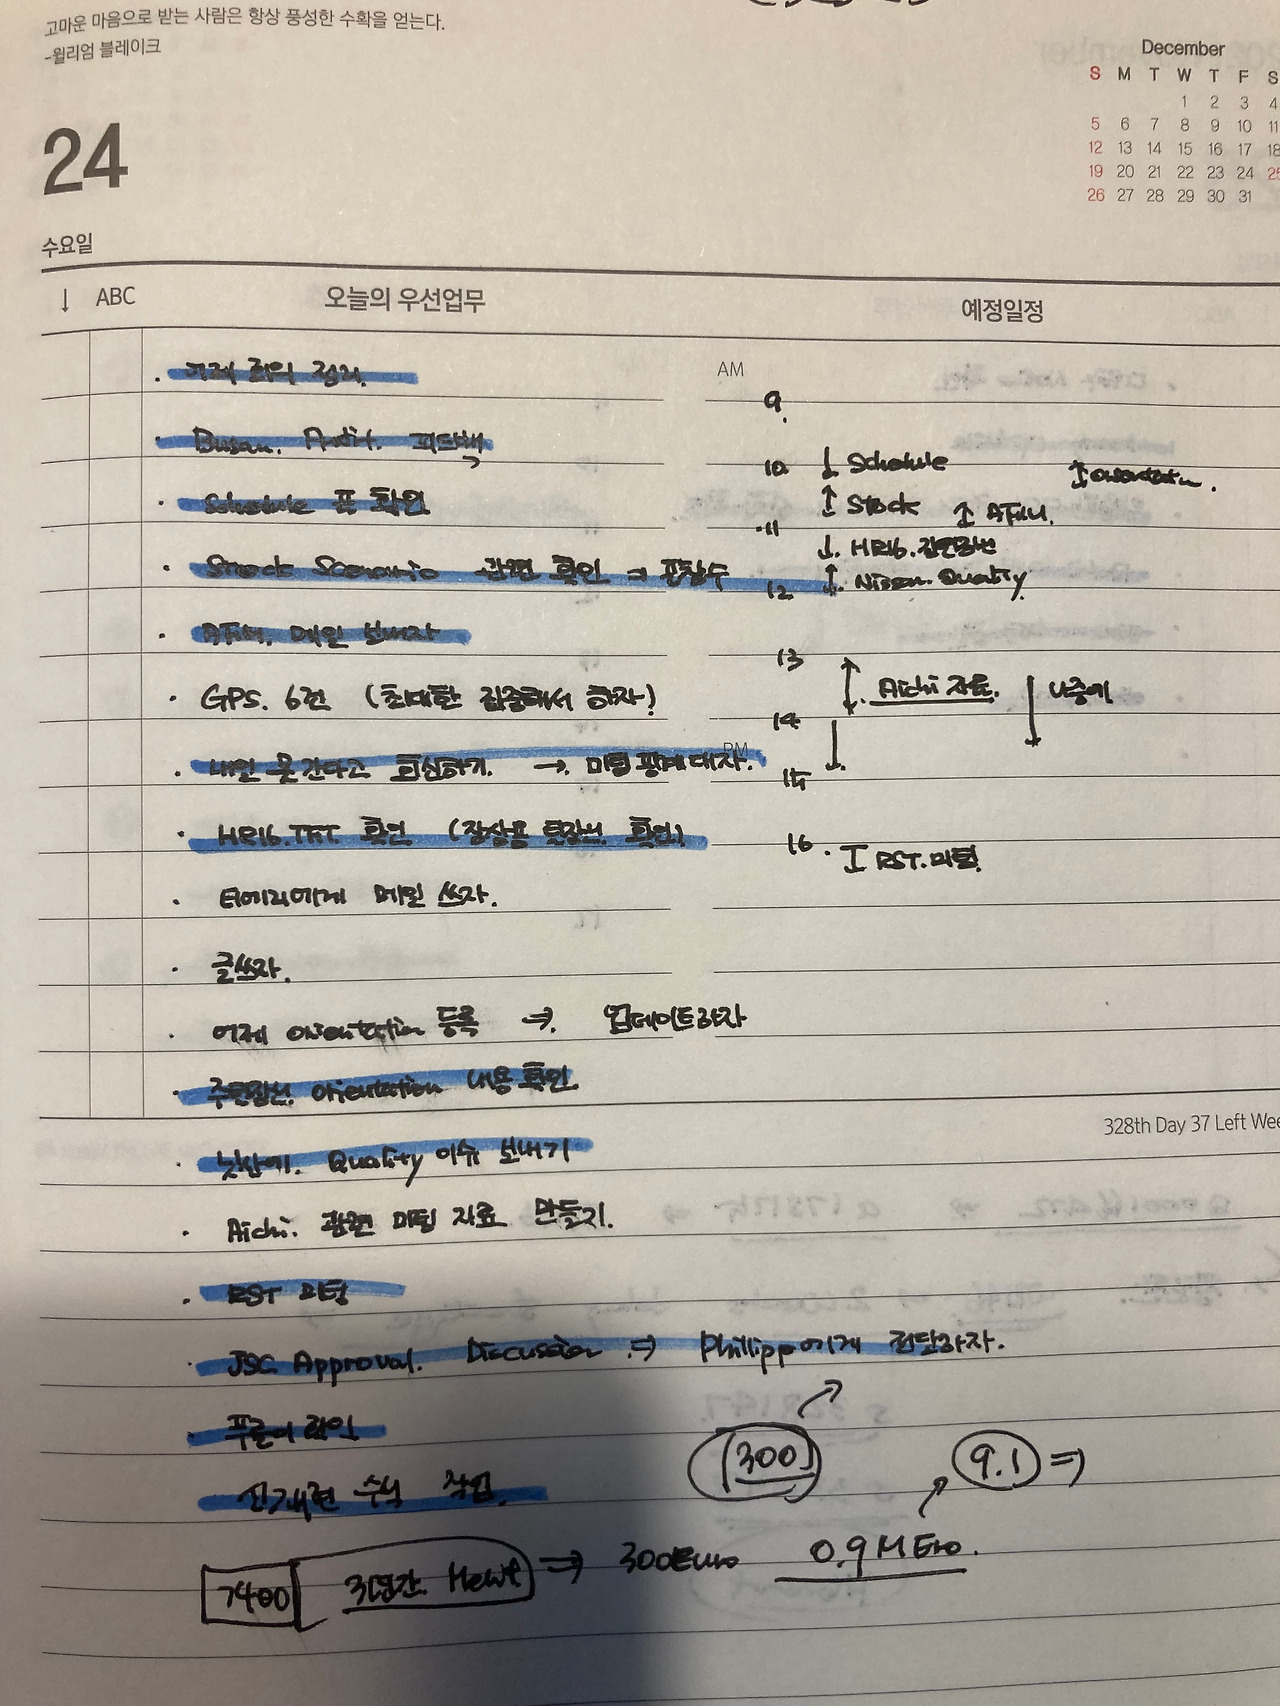 고마운 마음으로 받는 사람은 항상 풍성한 수확을 얻는다.
-윌리엄 블레이크
December
S M T W T F S
1 2 3 4
5 6 7 8 9 10 11
12 13 14 15 16 17 18
19 20 21 22 23 24 25
26 27 28 29 30 31
24
수요일
↓ ABC 오늘의 우선업무 예정일정
· 어제 회의 정리.
· Busan. Audit. 피드백
· Schedule 표 확인
· Stock Scenario 관련 확인 ⇒
· 메일 보내자
· GPS. 6건 (최대한 집중해서 하자!)
· 내일 못간다고 회신하기. →
· HR16. 확인
· 티에리에게 메일 쓰자.
· 글쓰자.
· 어제 orientation 등록 ⇒ 업데이트하자
· orientation 내용 확인.
AM
9.
10 ↓ Schedule ↕ orientation.
↕ Stock
11
↓. HR16.
12 ↕. Nissan. Quality
13
Aichi 자료. 나중에
14
PM
15
16. RST. 미팅
328th Day 37 Left
· 닛산에. Quality 이슈 보내기
· Aichi. 관련 미팅 자료 만들기.
· RST 미팅
· JSC Approval. Discussion ⇒ Philipp에게 전달하자.
· 확인
수식 작업.
300
9.1 ⇒
7400 3년간 ⇒ 300Euro 0.9 M Euro.